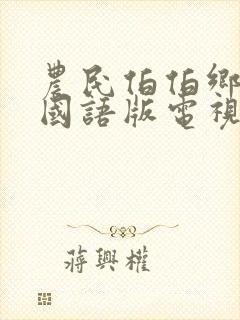 農民伯伯鄉
國語版電視
蔣興權